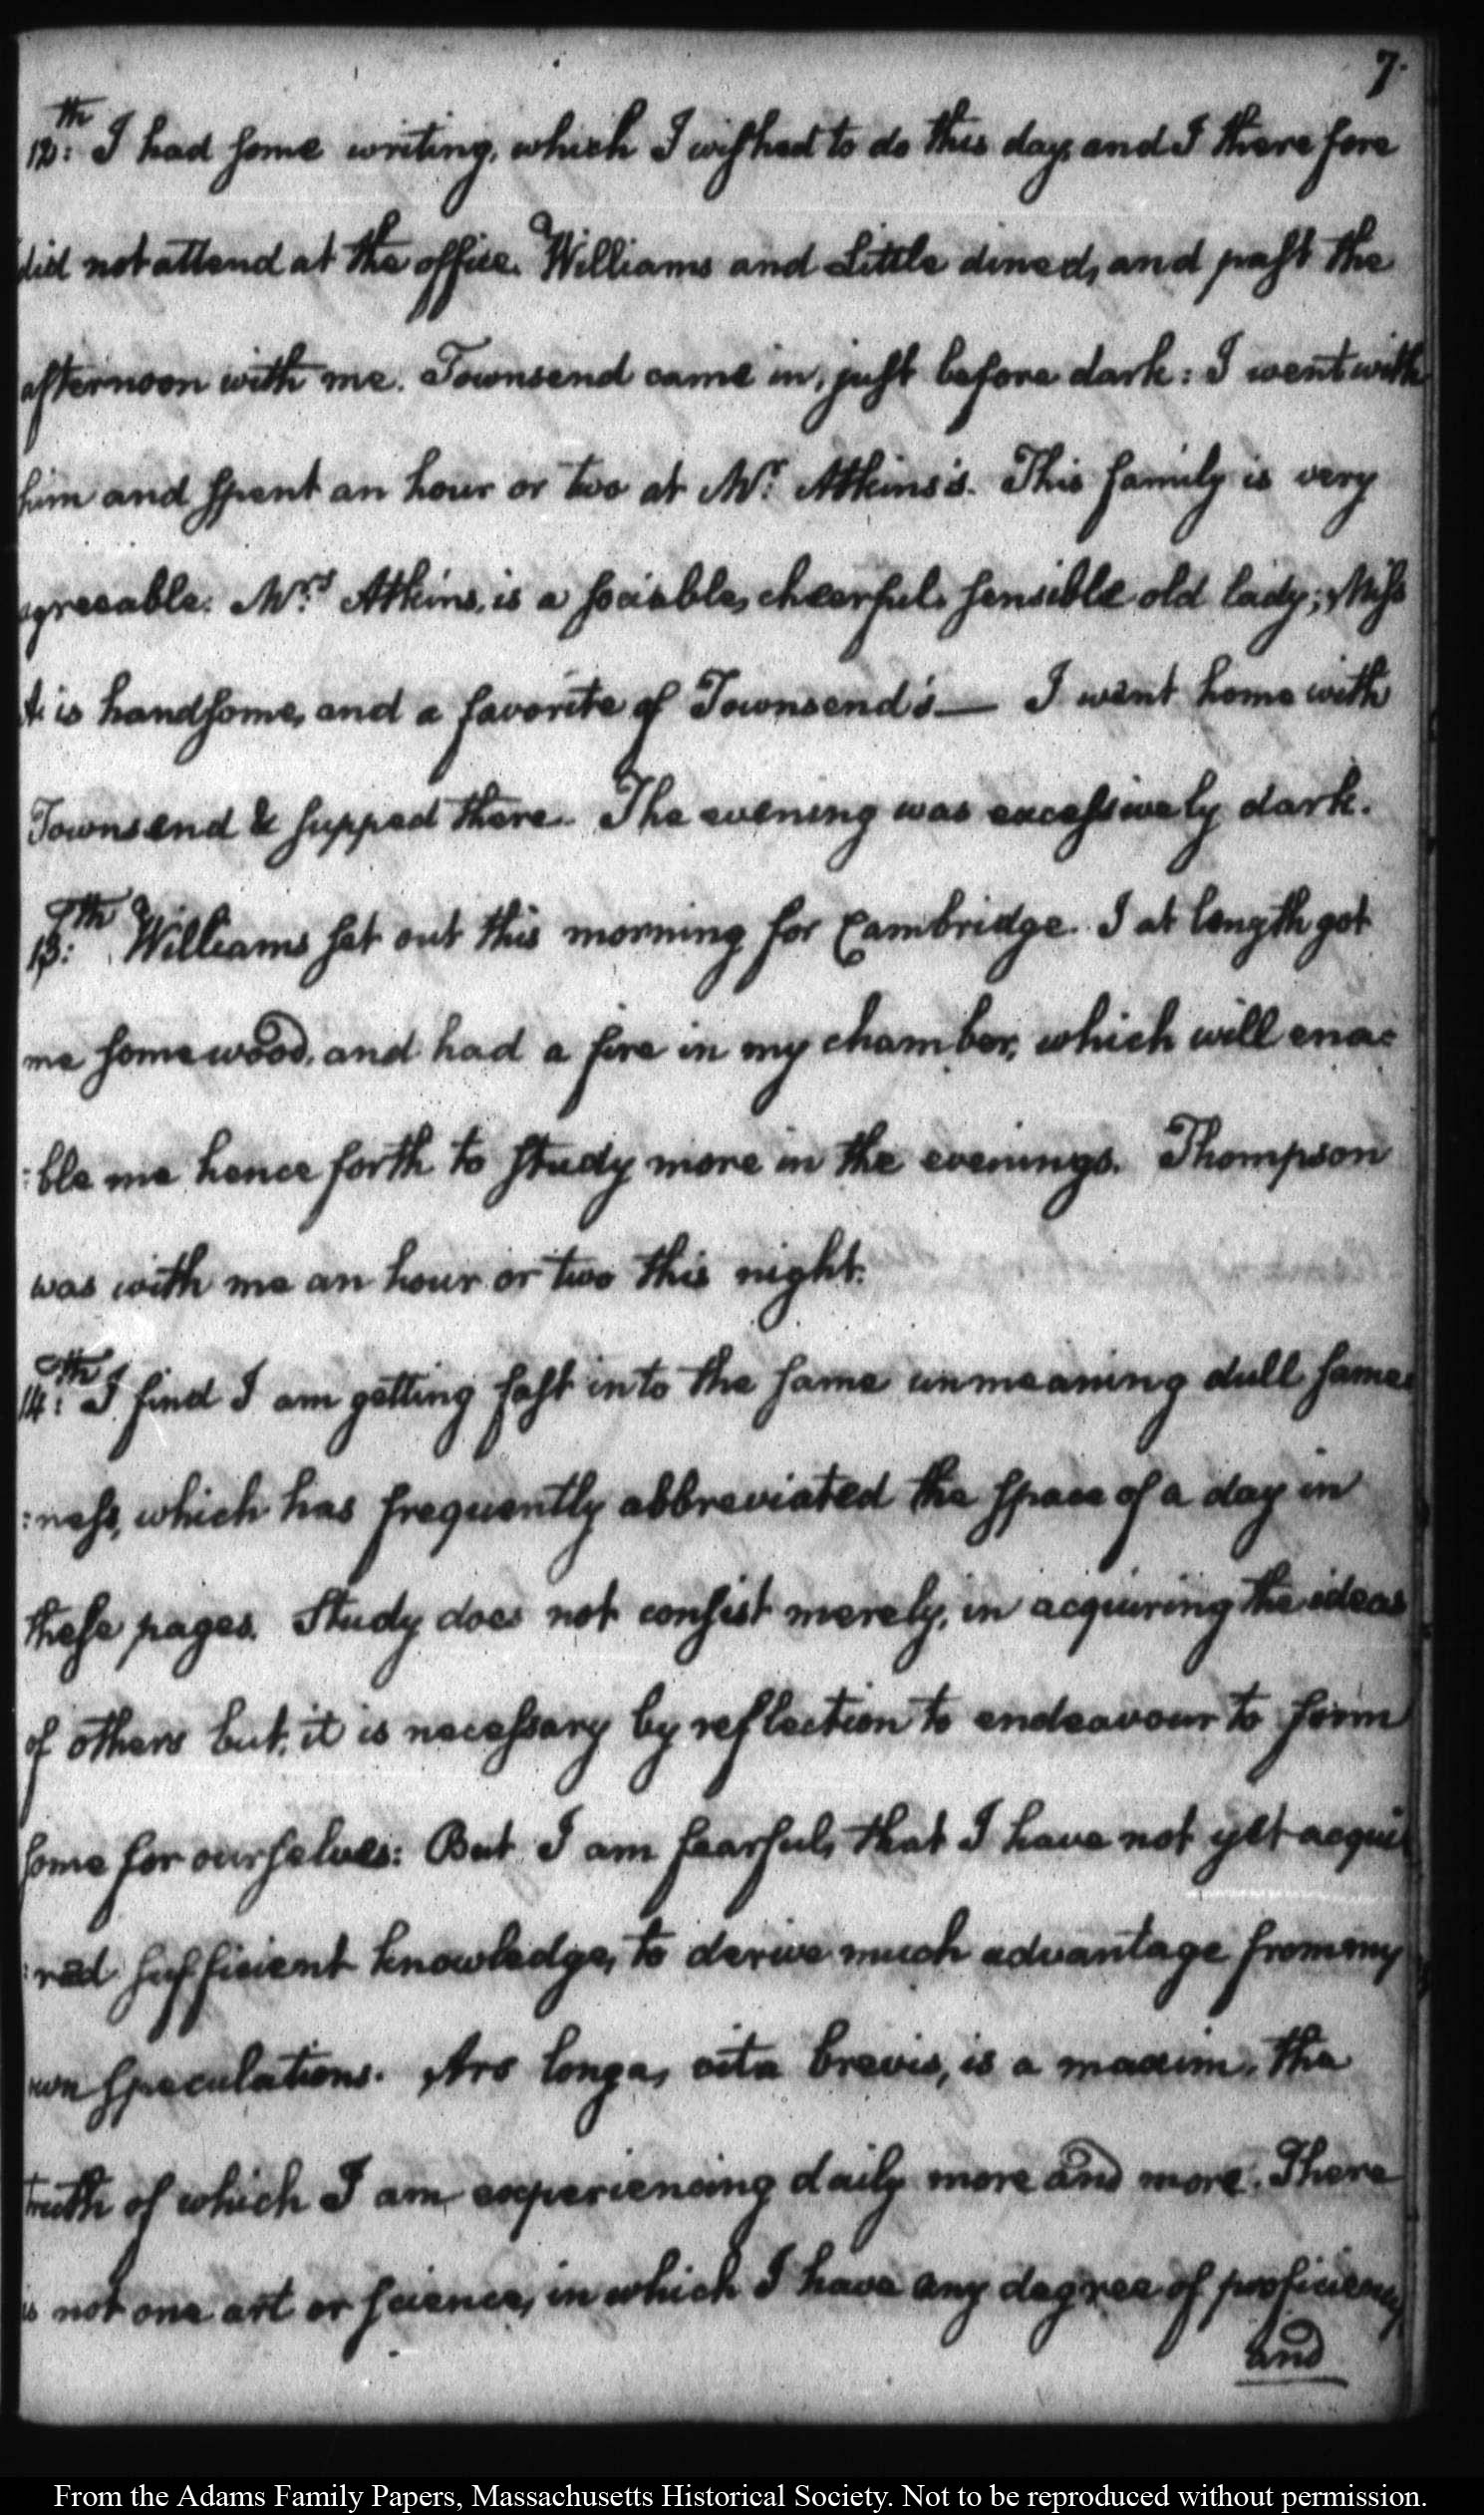 7.
12th: I had some writing, which I wished to do this day, and I therefore
did not attend at the office. Williams and Little dined, and past the
afternoon with me. Townsend came in, just before dark: I went with
him and spent an hour or two at Mr. Atkins's. This family is very
agreeable. Mrs. Atkins, is a sociable, cheerful, sensible old lady; Miss
A. is handsome, and a favorite of Townsend's — I went home with
Townsend & supped there. The evening was excessively dark.
13th: Williams set out this morning for Cambridge. I at length got
me some wood, and had a fire in my chamber, which will ena:
:ble me hence forth to study more in the evenings. Thompson
was with me an hour or two this night.
14th: I find I am getting fast into the same unmeaning dull same:
:ness, which has frequently abbreviated the space of a day in
these pages. Study does not consist merely, in acquiring the ideas
of others but, it is necessary by reflection to endeavour to form
some for ourselves: But I am fearful, that I have not yet acqui
:red sufficient knowledge, to derive much advantage from my
own speculations. Ars longa, vita brevis, is a maxim, the
truth of which I am experiencing daily more and more. There
is not one art or science, in which I have any degree of proficiency
and
From the Adams Family Papers, Massachusetts Historical Society. Not to be reproduced without permission.